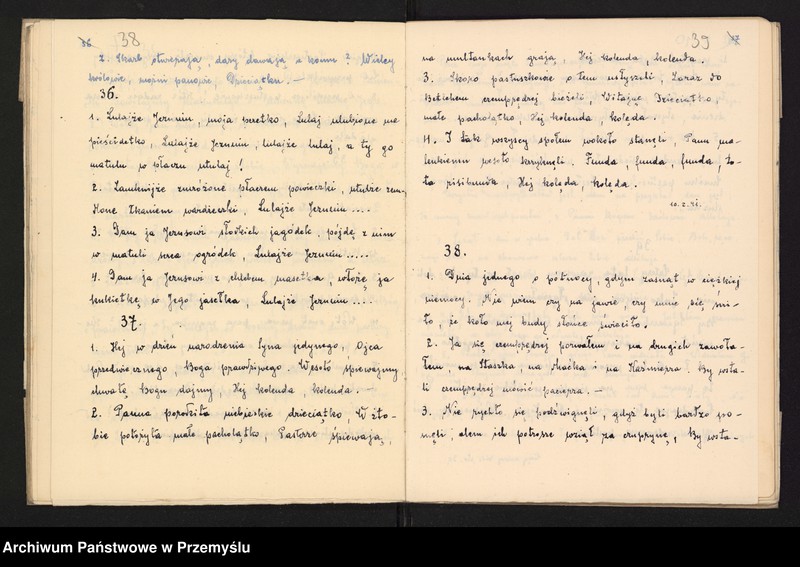 36 38
2. Skarb otwierają, dary dawają a komu? Wielcy
królowie, możni panowie, Dzieciątku. —
36.
1. Lulajże Jezuniu, moja perełko, Lulaj ulubione me
pieścidełko, Lulajże Jezuniu, lulajże lulaj, a ty go
matulu w płaczu utulaj!
2. Zamknijże znużone płaczem powieczki, utulże zem-
dlone łkaniem wardzeczki, Lulajże Jezuniu ....
3. Dam ja Jezusowi słodkich jagódek, pójdę z nim
w matuli serca ogródek, Lulajże Jezuniu .....
4. Dam ja Jezusowi z chlebem masełka, włożę ja
kukiełkę w Jego jasełka, Lulajże Jezuniu ....
37.
1. Hej w dzień narodzenia Syna jedynego, Ojca
przedwiecznego, Boga prawdziwego. Wesoło śpiewajmy
chwałę Bogu dajmy, Hej kolenda, kolenda. —
2. Panna porodziła niebieskie dzieciątko, W żło-
bie położyła małe pacholątko, Pasterze śpiewają,
39
na multankach grają, Hej kolenda, kolenda.
3. Skoro pastuszkowie o tem usłyszeli, Zaraz do
Betlehem czemprędzej bieżeli, Witając Dzieciątko,
małe pacholątko, Hej kolenda, kolęda.
4. I tak wszyscy społem wokoło stanęli, Panu ma-
leńkiemu wesoło krzyknęli. Funda, funda, funda, to-
ta risibunda, Hej kolęda, kolęda.
38.
1. Dnia jednego o północy, gdym zasnął w ciężkiej
niemocy. Nie wiem czy na jawie, czy mnie się śni-
ło, że koło mej budy słońce świeciło.
2. Ja się czemprędzej porwałem i na drugich zawoła-
łem, na Staszka, na Maćka i na Kaźmierza. By wsta-
li czemprędzej mówić pacierza. —
3. Nie rychło się podźwignęli, gdyż byli bardzo po-
snęli, alem ich potrosze wziął za czuprynę, By wsta-
Archiwum Państwowe w Przemyślu